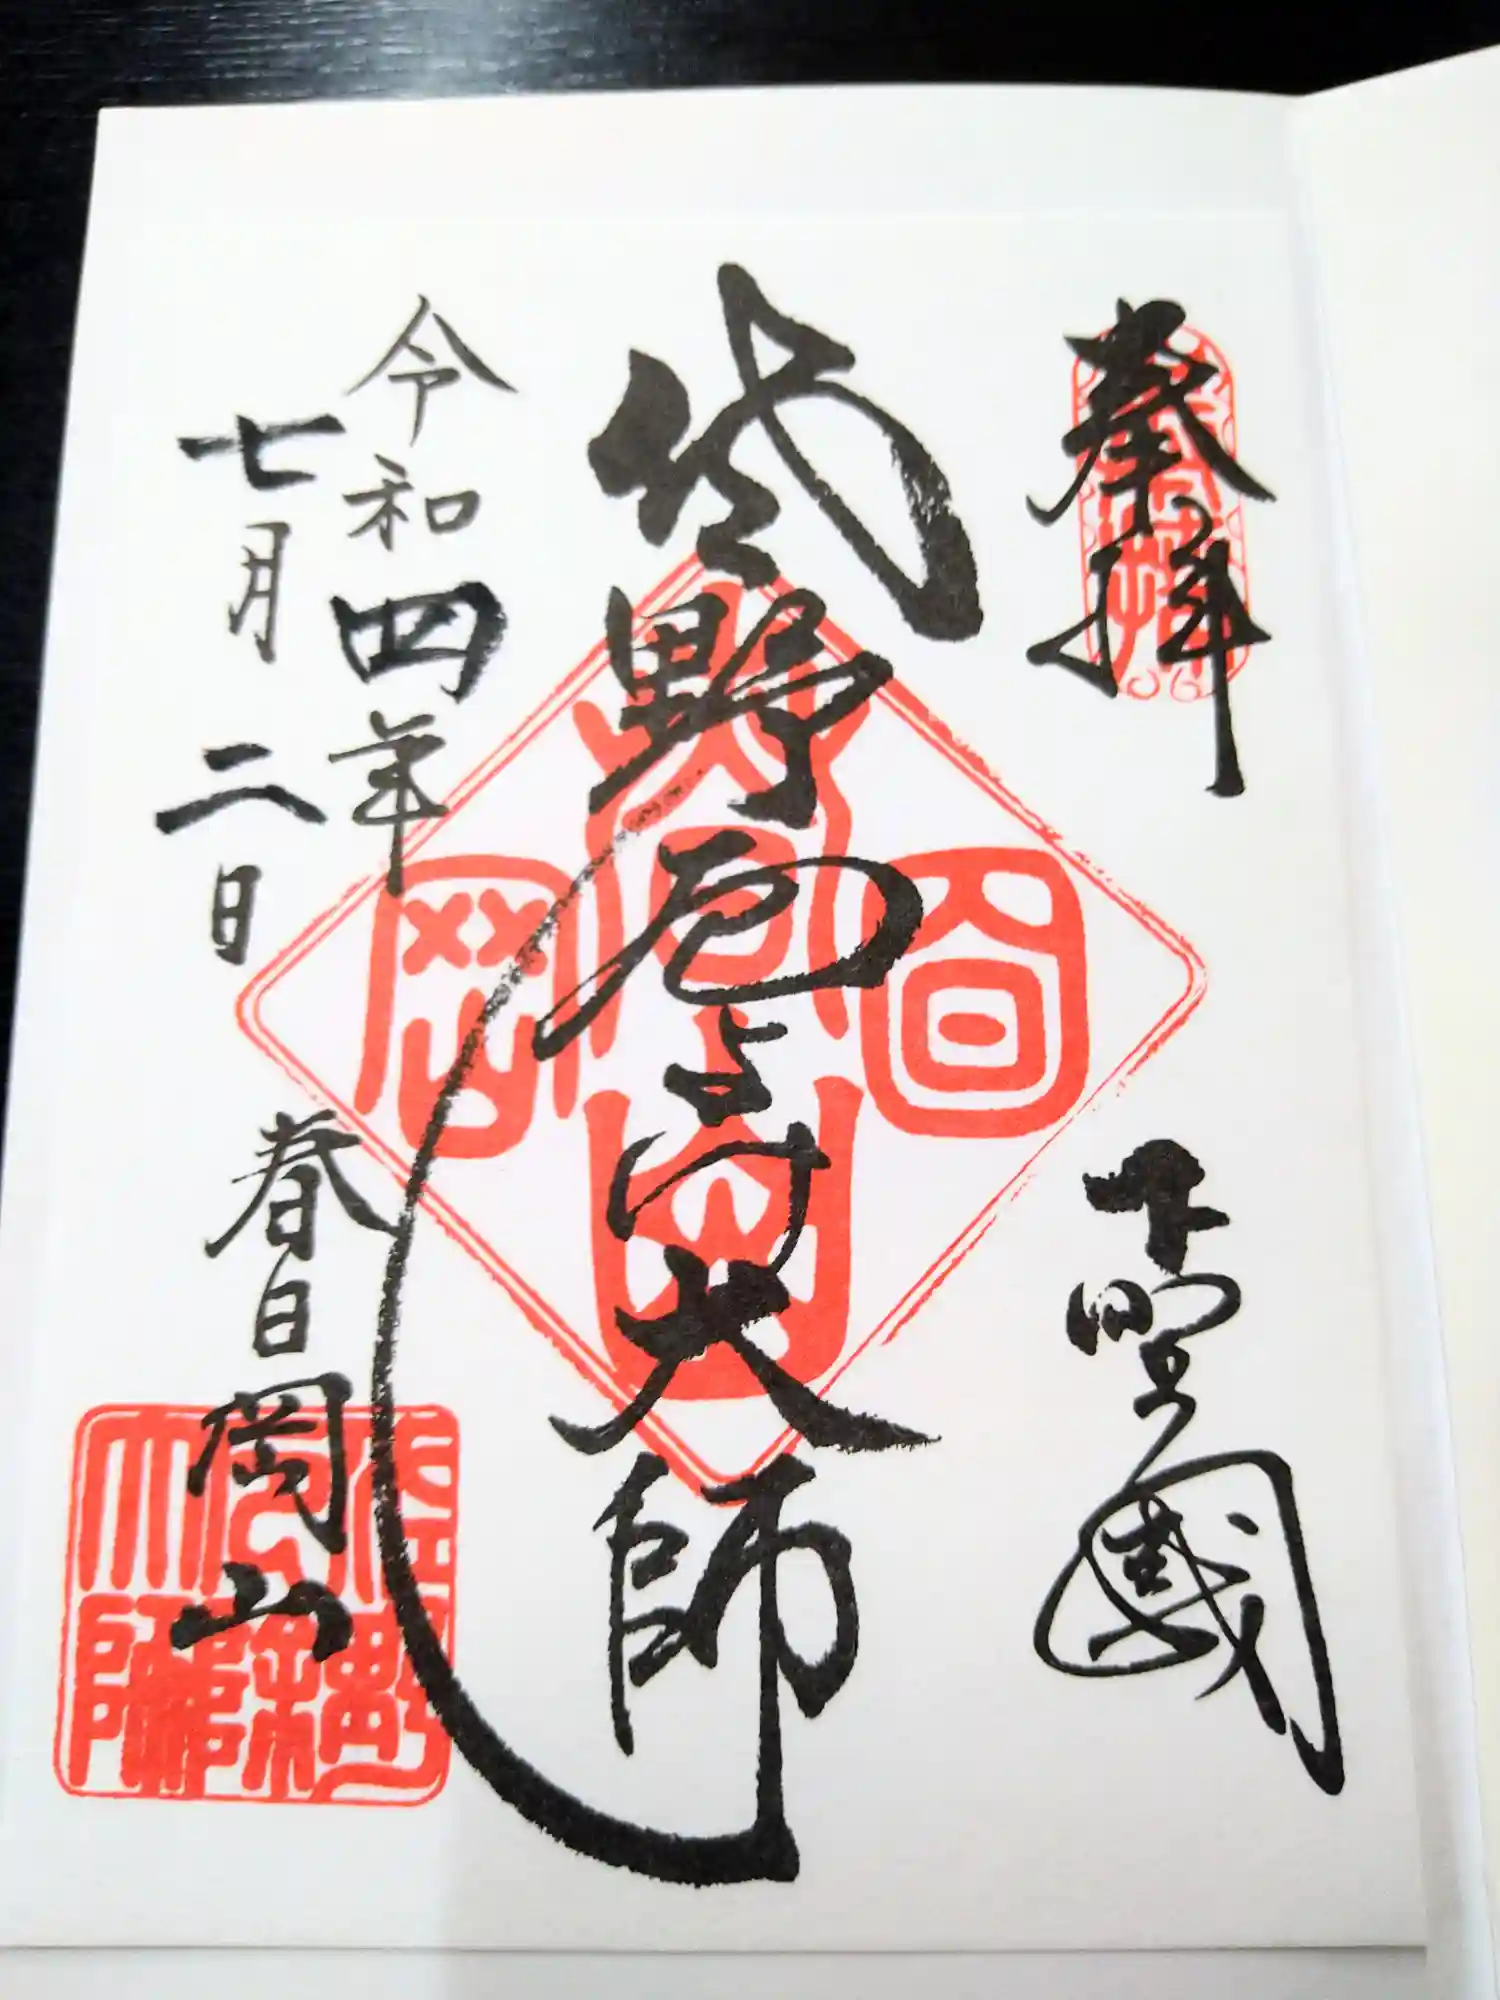 奉拝
下野國
佐野厄よけ大師
令和四年
七月二日
春日岡山